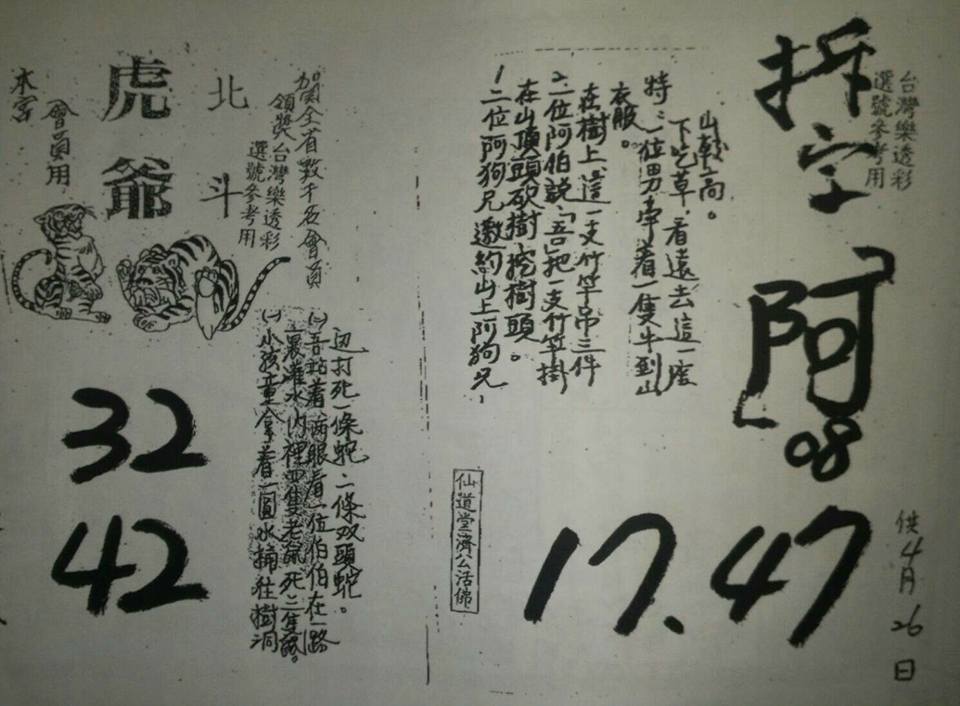 台灣樂透彩
選號參考用
拆字
阿
08
17.47
供4月26日
1二位阿狗兄邀約山上阿狗兄,
在山頂頭砍樹挖樹頭。
2二位阿伯說「吾把一支竹竿掛
在樹上,這一支竹竿吊三件
衣服。
特:一位男牽着一隻牛到山
下吃草,看遠去這一座
山較高。
仙道堂濟公活佛
賀全省數千名會員
領獎台灣樂透彩
選號參考用
北斗
虎爺
會員用
本宮
㈠小孩童拿着一圓水桶往樹洞
裏灌水內裡四隻老鼠死二隻
㈡吾站着兩眼看一位伯伯在一路
边打死一條蛇,二條双頭蛇。
32
42